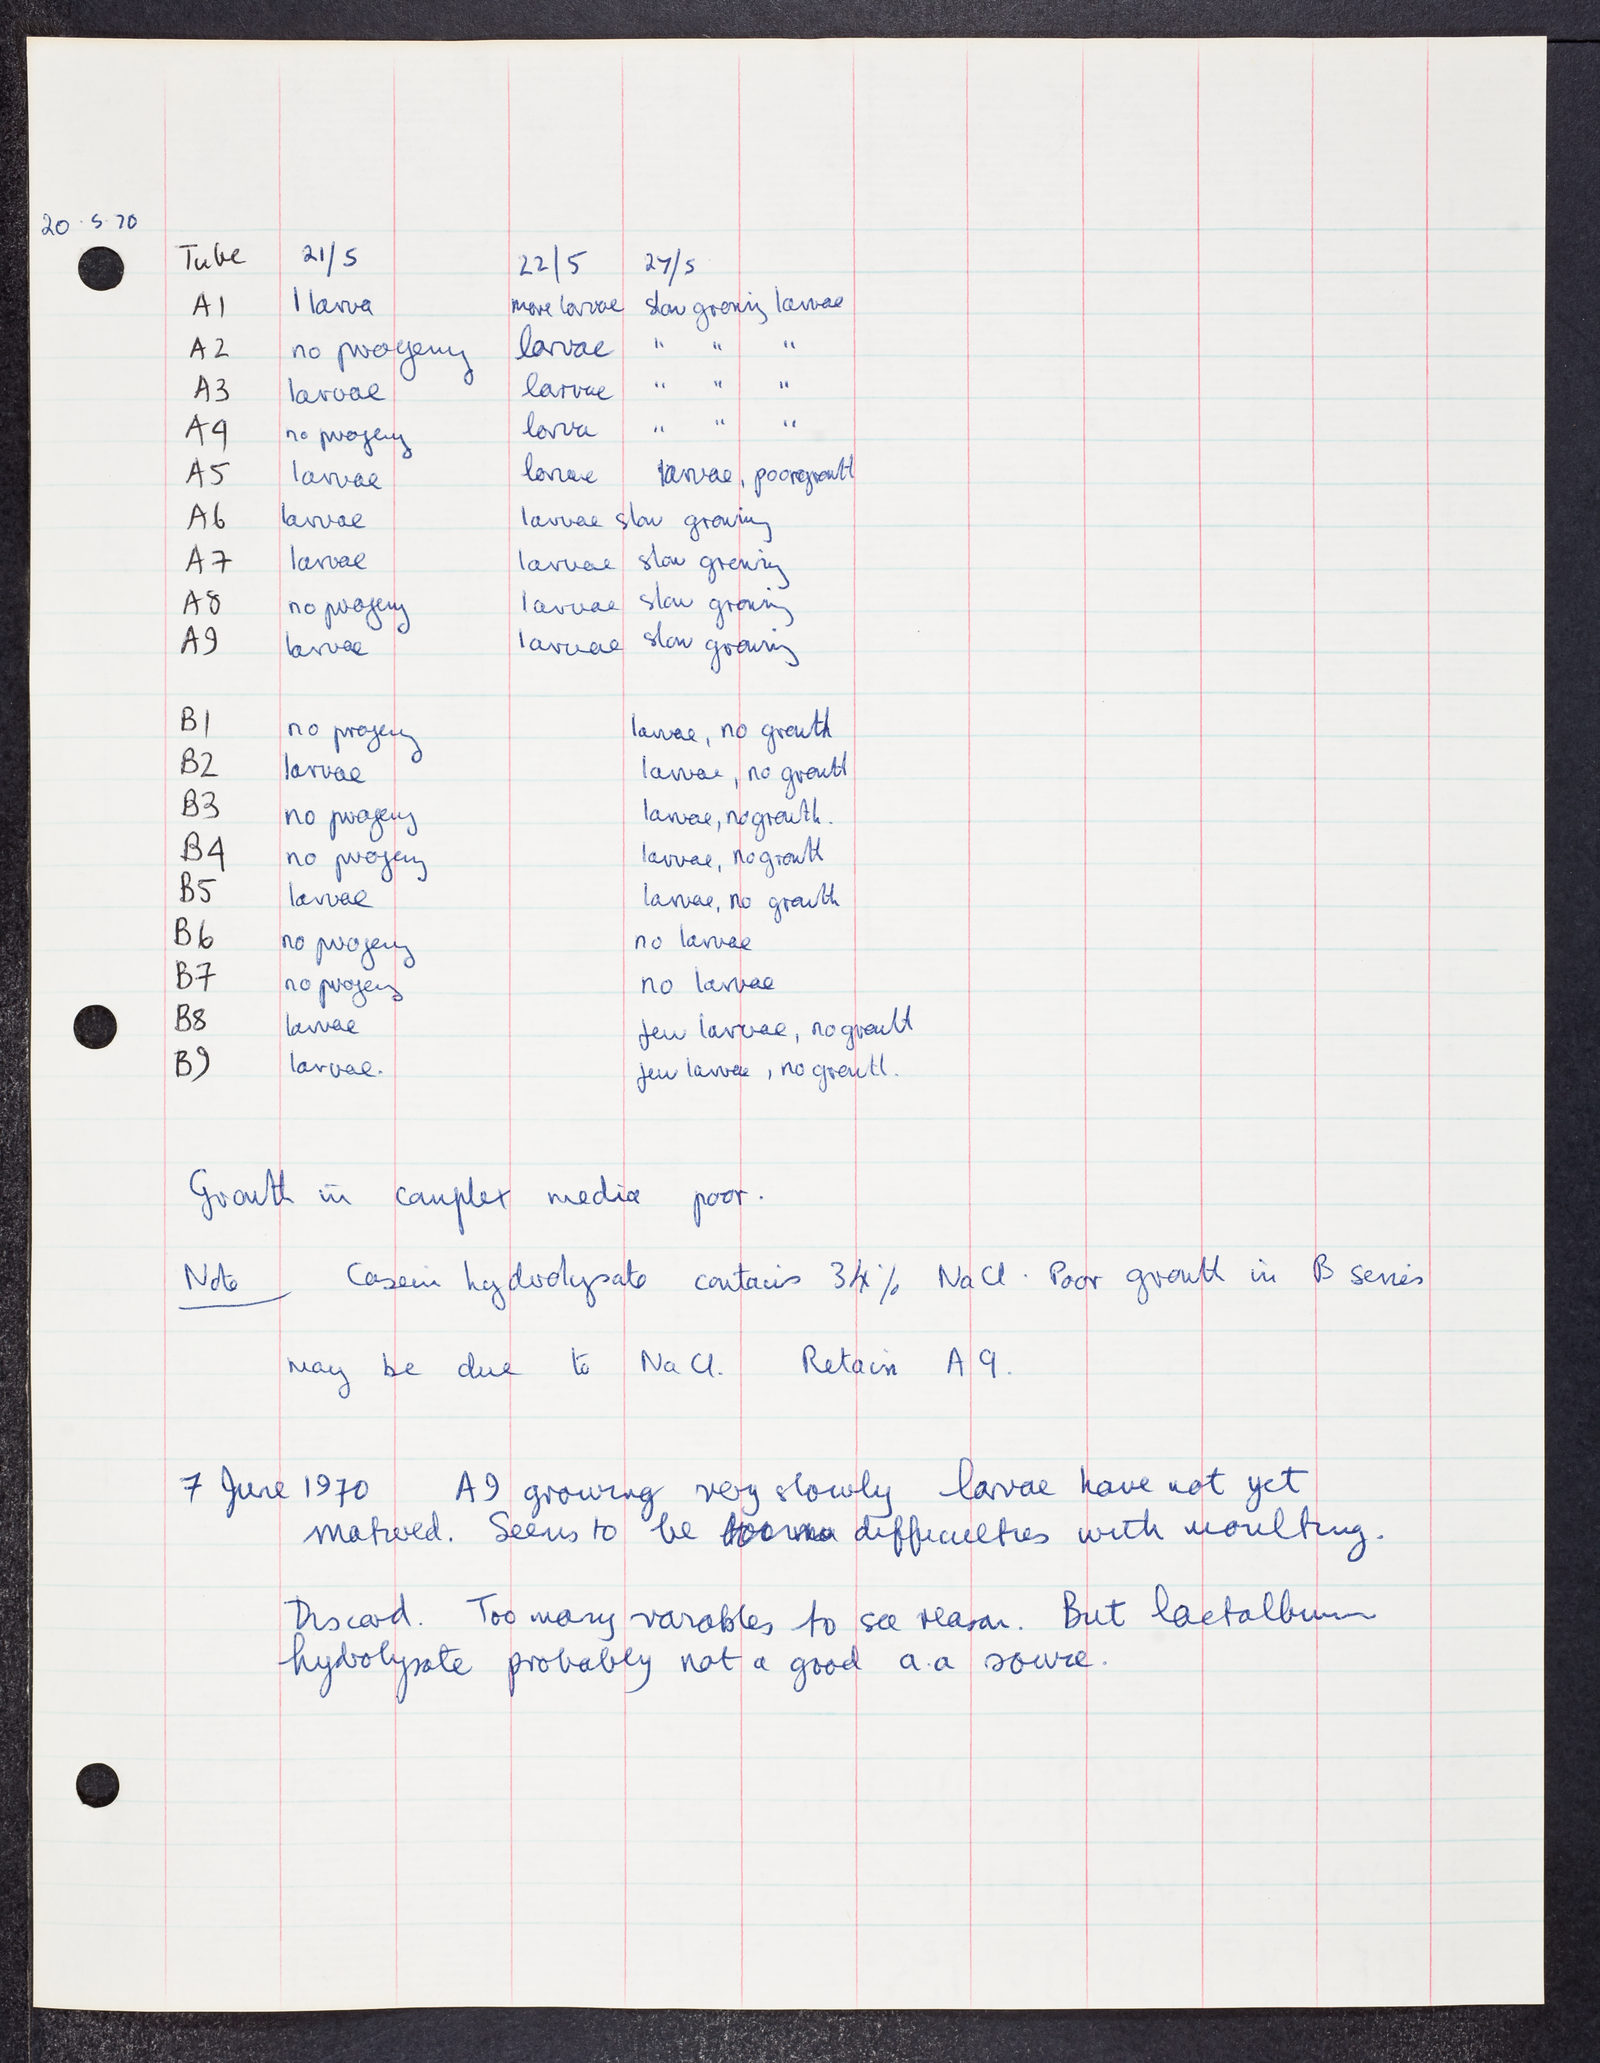 20.5.70
Tube 21/5 22/5 27/5
A1 1 larva more larvae slow growing larvae
A2 no progeny larvae " " "
A3 larvae larvae " " "
A4 no progeny larva " " "
A5 larvae larvae larvae, poor growth
A6 larvae larvae slow growing
A7 larvae larvae slow growing
A8 no progeny larvae slow growing
A9 larvae larvae slow growing
B1 no progeny larvae, no growth
B2 larvae larvae, no growth
B3 no progeny larvae, no growth.
B4 no progeny larvae, no growth
B5 larvae larvae, no growth
B6 no progeny no larvae
B7 no progeny no larvae
B8 larvae few larvae, no growth
B9 larvae. few larvae, no growth.
Growth in complex media poor.
Note Casein hydrolysate contains % NaCl. Poor growth in B series
may be due to NaCl. Retain A9.
7 June 1970 A9 growing very slowly larvae have not yet
matured. Seems to be difficulties with moulting.
Discard. Too many variables to see reason. But lactalbumin
hydrolysate probably not a good a.a source.